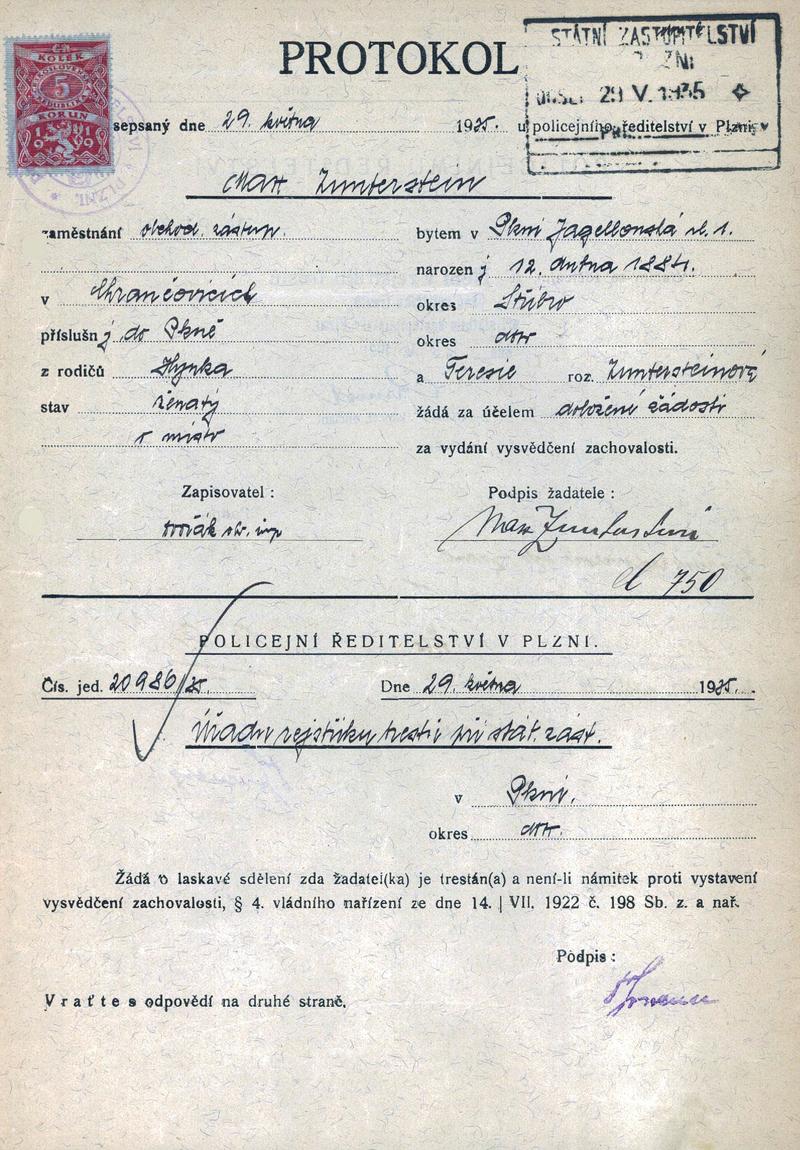 KOLEK
5
KORUN
1919
PROTOKOL
STÁTNÍ ZASTUPITELSTVÍ
29 V. 1935
sepsaný dne 29. května 1935. u policejního ředitelství v Plzni
Max Zunterstein
zaměstnání obchod. zástup. bytem v Plzni Jagellonská ul. 1.
narozený 12. dubna 1884.
v Chrančovicích okres Stříbro
příslušný do Plzně okres dtto
z rodičů Hynka a Terezie roz. Zuntersteinové
stav ženatý žádá za účelem doložení žádosti
za vydání vysvědčení zachovalosti.
Zapisovatel: Podpis žadatele:
Dvořák Max Zunterstein
750
POLICEJNÍ ŘEDITELSTVÍ V PLZNI.
Čís. jed. 20986/35. Dne 29. května 1935.
Úřadu rejstříku trestů při stát. zást.
v Plzni.
okres dtto.
Žádá o laskavé sdělení zda žadatel(ka) je trestán(a) a není-li námitek proti vystavení
vysvědčení zachovalosti, § 4. vládního nařízení ze dne 14. VII. 1922 č. 198 Sb. z. a nař.
Podpis:
Vraťte s odpovědí na druhé straně.